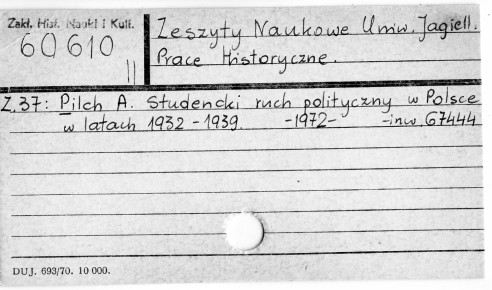 Zakł. Hist. Nauki i Kult.
60610
II
Zeszyty Naukowe Uniw. Jagiell.
Prace Historyczne.
Z.37: Pilch A. Studencki ruch polityczny w Polsce
w latach 1932-1939. -1972- -inw. 67444
DUJ. 693/70. 10 000.